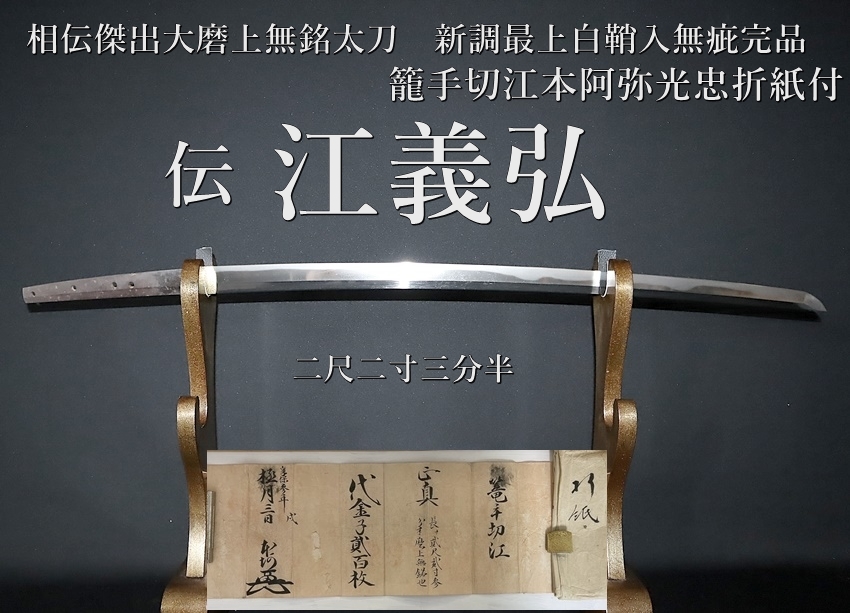 相伝傑出大磨上無銘太刀　新調最上白鞘入無疵完品
籠手切江本阿弥光忠折紙付
伝 江義弘
二尺二寸三分半
折紙
篭手切江
正真
長サ貳尺貳寸参
分半磨上無銘也
代金子貳百枚
極月三日